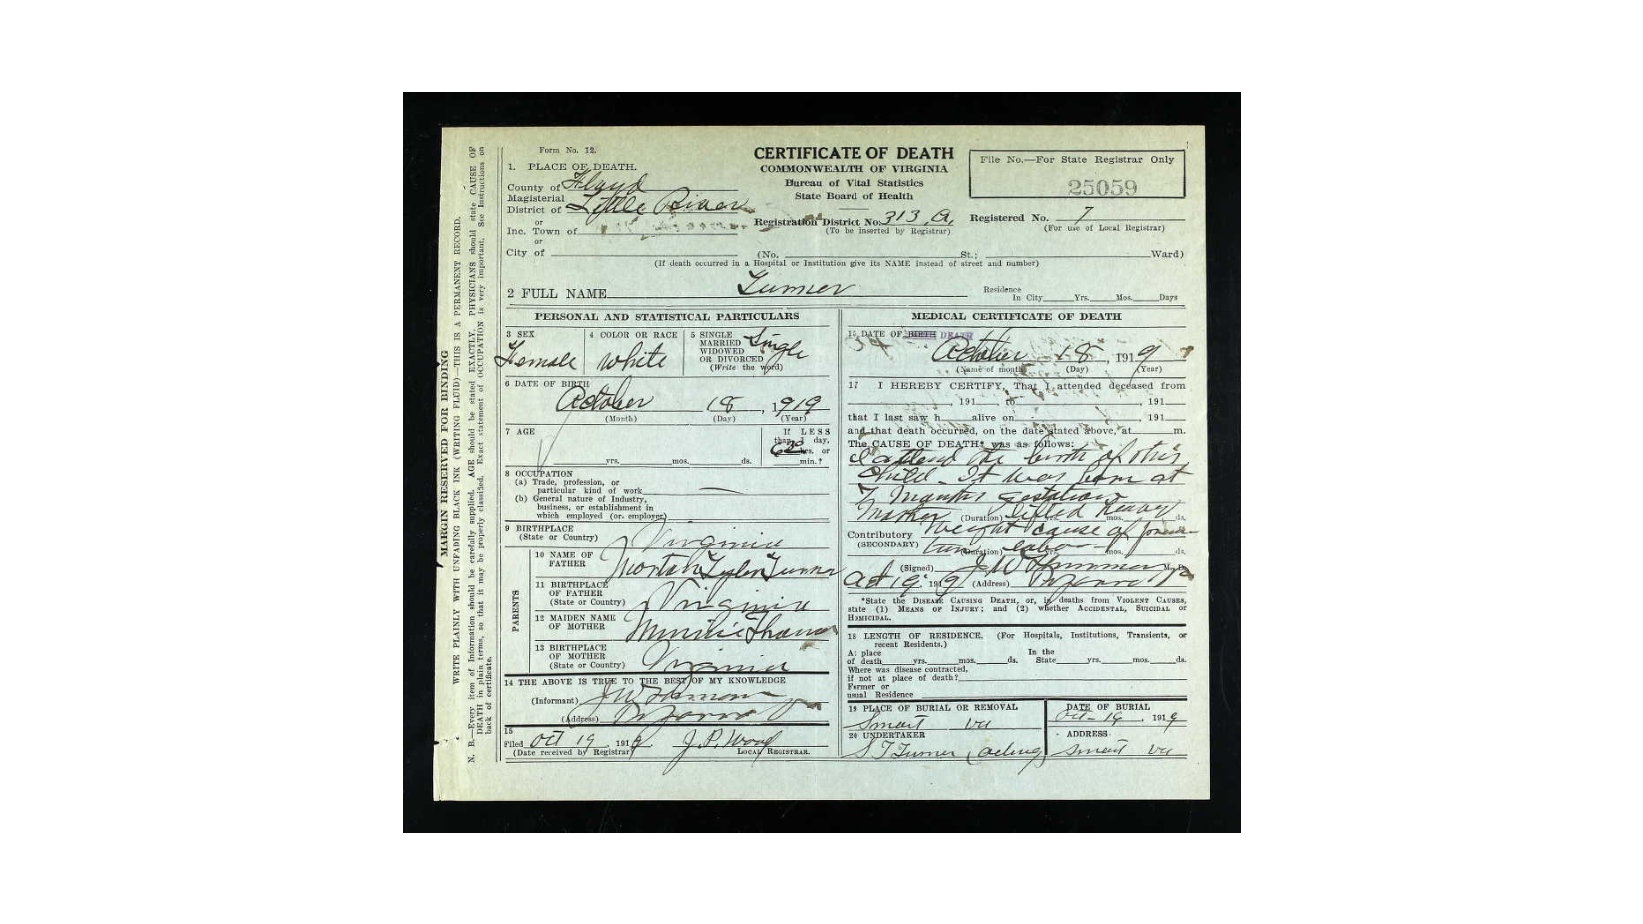 Form No. 12.
CERTIFICATE OF DEATH
COMMONWEALTH OF VIRGINIA
Bureau of Vital Statistics
State Board of Health
File No.—For State Registrar Only
25059
1. PLACE OF DEATH.
County of Floyd
Magisterial
District of Little River
or
Inc. Town of
or
City of
Registration District No. 313 A.
(To be inserted by Registrar)
Registered No. 7
(For use of Local Registrar)
(No. St.; Ward)
(If death occurred in a Hospital or Institution give its NAME instead of street and number)
2 FULL NAME Turner
Residence
In City Yrs. Mos. Days
PERSONAL AND STATISTICAL PARTICULARS
3 SEX
Female
4 COLOR OR RACE
White
5 SINGLE
MARRIED
WIDOWED
OR DIVORCED
(Write the word)
Single
6 DATE OF BIRTH
October 18, 1919
(Month) (Day) (Year)
7 AGE
yrs. mos. ds.
If LESS
than 1 day,
hrs. or
min.?
8 OCCUPATION
(a) Trade, profession, or
particular kind of work
(b) General nature of Industry,
business, or establishment in
which employed (or employer)
9 BIRTHPLACE
(State or Country) Virginia
PARENTS
10 NAME OF
FATHER Tyler Turner
11 BIRTHPLACE
OF FATHER
(State or Country) Virginia
12 MAIDEN NAME
OF MOTHER Minnie
13 BIRTHPLACE
OF MOTHER
(State or Country) Virginia
14 THE ABOVE IS TRUE TO THE BEST OF MY KNOWLEDGE
(Informant) J W
(Address)
15
Filed Oct 19 1919 J. P. Wood
(Date received by Registrar) LOCAL REGISTRAR.
MEDICAL CERTIFICATE OF DEATH
16 DATE OF BIRTH DEATH
October 18, 1919
(Name of month) (Day) (Year)
17 I HEREBY CERTIFY, That I attended deceased from
, 191 to , 191
that I last saw h alive on , 191
and that death occurred, on the date stated above, at m.
The CAUSE OF DEATH* was as follows:
I attend the birth of this
child. It was born at
7 Months gestation
Mother (Duration) lifted heavy mos. ds.
Contributory weight cause of
(SECONDARY) (Duration) labor mos. ds.
(Signed) J. W. M. D.
Oct 19, 1919 (Address)
*State the DISEASE CAUSING DEATH, or, in deaths from VIOLENT CAUSES,
state (1) MEANS OF INJURY; and (2) whether ACCIDENTAL, SUICIDAL or
HOMICIDAL.
18 LENGTH OF RESIDENCE. (For Hospitals, Institutions, Transients, or
recent Residents.)
At place In the
of death yrs. mos. ds. State yrs. mos. ds.
Where was disease contracted,
if not at place of death?
Former or
usual Residence
19 PLACE OF BURIAL OR REMOVAL
Smart Va
DATE OF BURIAL
Oct-19, 1919
20 UNDERTAKER
S T Turner (acting)
ADDRESS
Smart Va
MARGIN RESERVED FOR BINDING
WRITE PLAINLY WITH UNFADING BLACK INK (WRITING FLUID)—THIS IS A PERMANENT RECORD.
N. B.—Every item of Information should be carefully supplied. AGE should be stated EXACTLY. PHYSICIANS should state CAUSE OF
DEATH in plain terms, so that it may be properly classified. Exact statement of OCCUPATION is very important. See Instructions on
back of certificate.